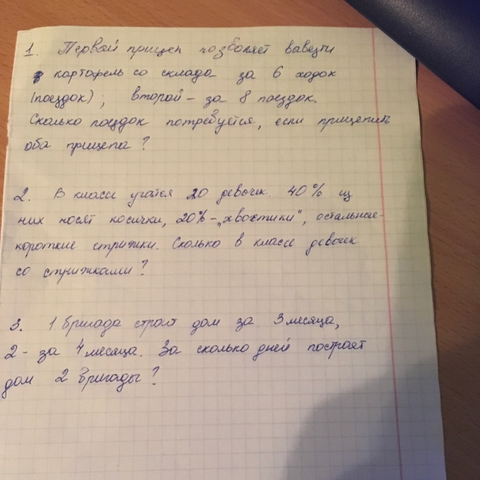 1. Первый прицеп позволяет вывезти
картофель со склада за 6 ходок
(поездок); второй - за 8 поездок.
Сколько поездок потребуется, если прицепить
оба прицепа?
2. В классе учатся 20 девочек. 40% из
них носят косички, 20% - „хвостики", остальные -
короткие стрижки. Сколько в классе девочек
со стрижками?
3. 1 бригада строит дом за 3 месяца,
2 - за 4 месяца. За сколько дней построят
дом 2 бригады?